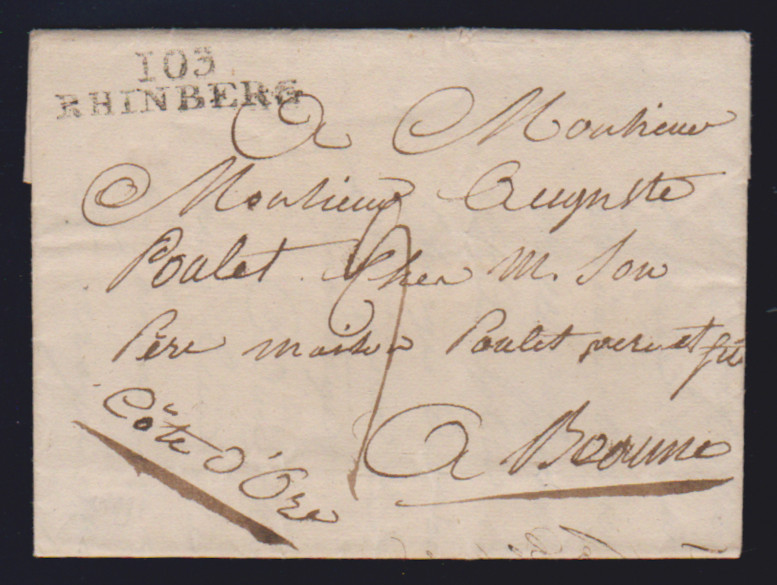 103
RHINBERG
A Monsieur
Monsieur Auguste
Poulet Chez M. Son
Père maison Poulet pere et fils
A Beaune
Côte d'Ore